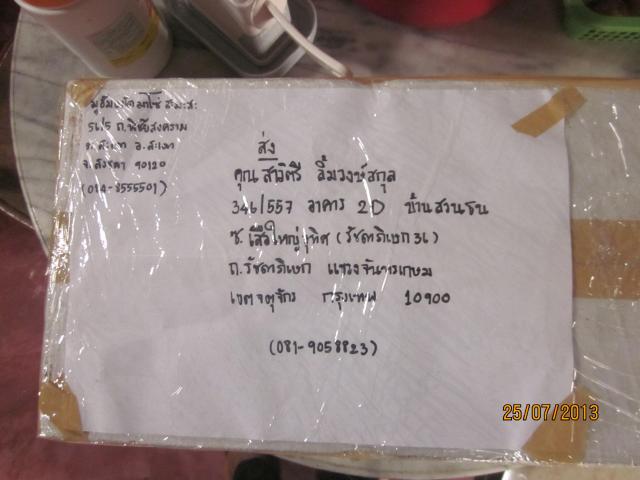 56/5 ถ.พิชัยสงคราม
ต.สะเดา อ.สะเดา
จ.สงขลา 90120
(084-8555501)
ส่ง
คุณ สาวิตรี ลิ้มวงษ์สกุล
346/557 อาคาร 2D บ้านสวนธน
ซ.เสือใหญ่อุทิศ (รัชดาภิเษก 36)
ถ.รัชดาภิเษก แขวงจันทรเกษม
เขตจตุจักร กรุงเทพ 10900
(081-9058823)
25/07/2013